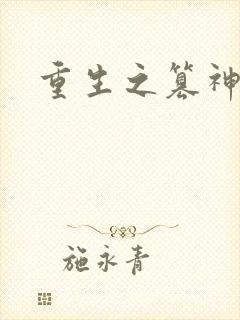 重生之篡神
施永青